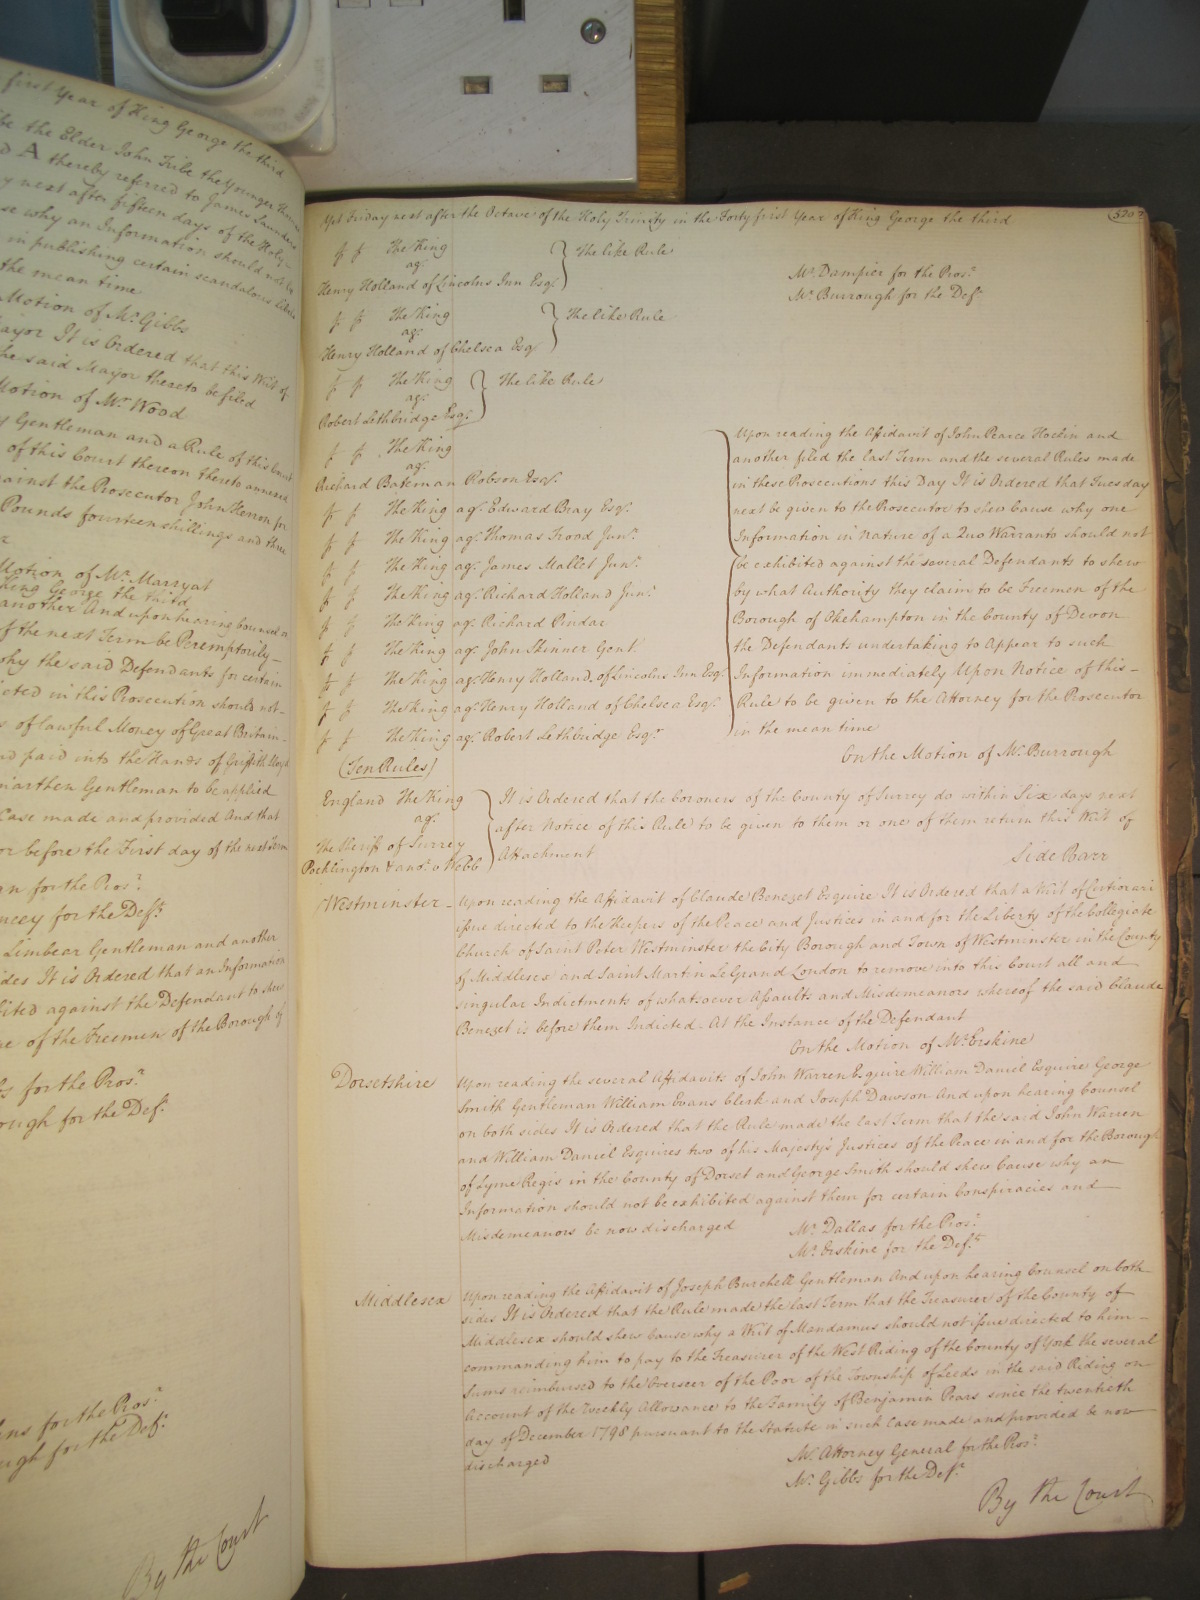 first Year of King George the third
the Elder John Tribe the Younger Thomas
A thereby referred to James Saunders
next after fifteen days of the Holy
why an Information should not be
in publishing certain scandalous Libels
the mean time
Motion of Mr. Gibbs
Mayor It is Ordered that this Writ of
the said Mayor thereto be filed
Motion of Mr. Wood
Gentleman and a Rule of this Court
of this Court thereon thereto annexed
against the Prosecutor John Herron for
Pounds fourteen shillings and three
Motion of Mr. Marryat
King George the third
another And upon hearing Counsel
of the next Term be Peremptorily
why the said Defendants for certain
in this Prosecution should not
of lawful Money of Great Britain
paid into the Hands of Griffith
Gentleman to be applied
Case made and provided And that
or before the First day of the next Term
for the Pros.r
for the Deft.
Limbear Gentleman and another
sides It is Ordered that an Information
against the Defendant to shew
of the Freemen of the Borough of
for the Pros.r
for the Def.t
for the Pros.r
for the Def.t
By the Court
Yet Friday next after the Octave of the Holy Trinity in the Forty first Year of King George the third
The King
ag.t
Henry Holland of Lincolns Inn Esq.r } The like Rule
Mr. Dampier for the Pros.r
Mr. Burrough for the Def.t
The King
ag.t
Henry Holland of Chelsea Esq.r } The like Rule
The King
ag.t
Robert Lethbridge Esq.r } The like Rule
The King
ag.t
Richard Bateman Robson Esq.r
The King ag.t Edward Bray Esq.r
The King ag.t Thomas Frood Jun.r
The King ag.t James Mallet Jun.r
The King ag.t Richard Holland Jun.r
The King ag.t Richard Pindar
The King ag.t John Skinner Gent.
The King ag.t Henry Holland of Lincolns Inn Esq.r
The King ag.t Henry Holland of Chelsea Esq.r
The King ag.t Robert Lethbridge Esq.r
(Ten Rules)
Upon reading the Affidavit of John Pearce Hockin and
another filed the last Term and the several Rules made
in these Prosecutions this Day It is Ordered that Tuesday
next be given to the Prosecutor to shew Cause why one
Information in Nature of a Quo Warranto should not
be exhibited against the several Defendants to shew
by what Authority they claim to be Freemen of the
Borough of Okehampton in the County of Devon
the Defendants undertaking to Appear to such
Information immediately Upon Notice of this
Rule to be given to the Attorney for the Prosecutor
in the mean time
On the Motion of Mr. Burrough
England The King
ag.t
The Sheriff of Surrey
Pocklington & ano.r v Webb
It is Ordered that the Coroners of the County of Surrey do within Six days next
after Notice of this Rule to be given to them or one of them return this Writ of
Attachment
Side Barr
Westminster Upon reading the Affidavit of Claude Benezet Esquire It is Ordered that a Writ of Certiorari
issue directed to the Keepers of the Peace and Justices in and for the Liberty of the Collegiate
Church of Saint Peter Westminster the City Borough and Town of Westminster in the County
of Middlesex and Saint Martin Le Grand London to remove into this Court all and
singular Indictments of whatsoever Assaults and Misdemeanors whereof the said Claude
Benezet is before them Indicted. At the Instance of the Defendant
On the Motion of Mr. Erskine
Dorsetshire Upon reading the several Affidavits of John Warren Esquire William Daniel Esquire George
Smith Gentleman William Evans Clerk and Joseph Dawson And upon hearing Counsel
on both sides It is Ordered that the Rule made the last Term that the said John Warren
and William Daniel Esquires two of his Majesty's Justices of the Peace in and for the Borough
of Lyme Regis in the County of Dorset and George Smith should shew Cause why an
Information should not be exhibited against them for certain Conspiracies and
Misdemeanors be now discharged
Mr. Dallas for the Pros.r
Mr. Erskine for the Def.ts
Middlesex Upon reading the Affidavit of Joseph Burchell Gentleman And upon hearing Counsel on both
sides It is Ordered that the Rule made the last Term that the Treasurer of the County of
Middlesex should shew Cause why a Writ of Mandamus should not issue directed to him
commanding him to pay to the Treasurer of the West Riding of the County of York the several
Sums reimbursed to the Overseer of the Poor of the Township of Leeds in the said Riding on
Account of the Weekly Allowance to the Family of Benjamin Pears since the twentieth
day of December 1798 pursuant to the Statute in such Case made and provided be now
discharged
Mr. Attorney General for the Pros.r
Mr. Gibbs for the Def.t
By the Court